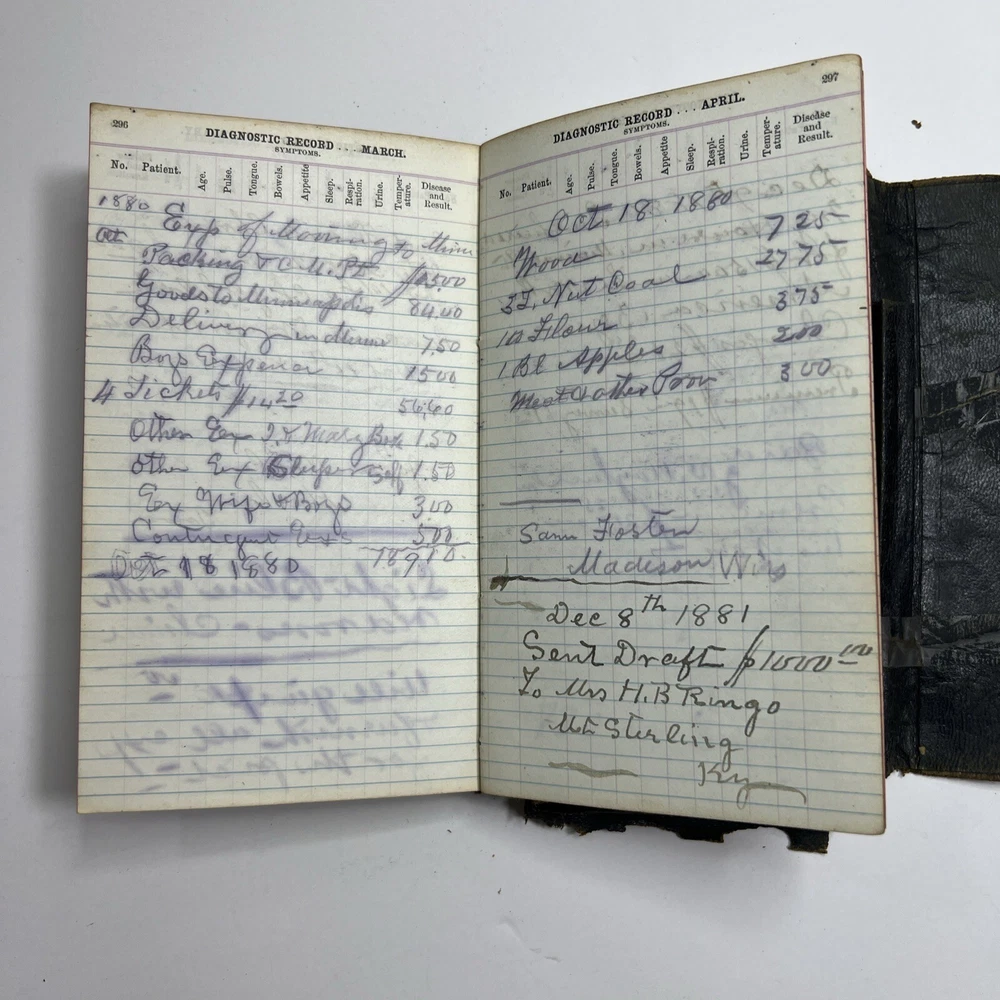 296
DIAGNOSTIC RECORD . . . MARCH.
SYMPTOMS.
No. Patient. Age. Pulse. Tongue. Bowels. Appetite Sleep. Respiration. Urine. Temperature. Disease and Result.
1880 Exp of Moving to Minn
Oct
Packing &C M. Pt
Goods to Minneapolis 84.40
Delivery in Minn 7.50
Boys Expense 1500
4 Tickets $14 20 56.60
Other Ex J. & Mary Box 1.50
Other Ex Sleeper self 1.50
Ex Wife & Boys 300
Contingent Exs 500
Oct 18 1880 189.10
297
DIAGNOSTIC RECORD . . . APRIL.
SYMPTOMS.
No. Patient. Age. Pulse. Tongue. Bowels. Appetite Sleep. Respiration. Urine. Temperature. Disease and Result.
Oct 18 1880
Wood 7 25
3 T. Nut Coal 27 75
Flour 3 75
1 Bl Apples 200
Meat & other Prov 3 00
Sam Foster
Madison Wis
Dec 8th 1881
Sent Draft $1000 00
To Mrs H. B Ringo
Mt Sterling
Ky